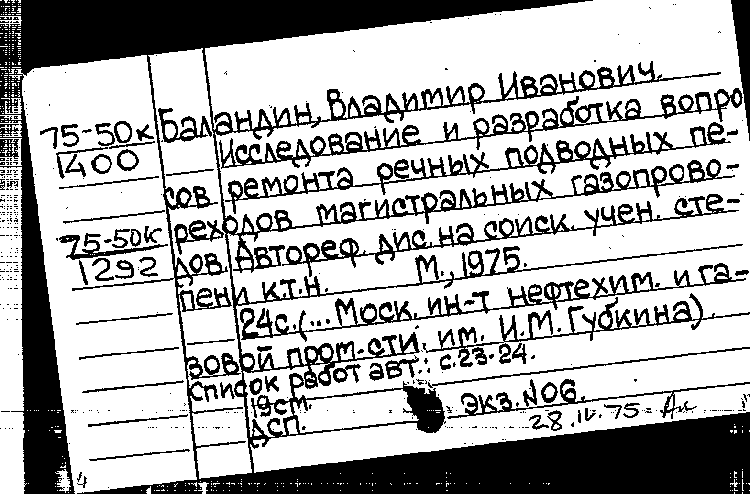 75-50к
1400
75-50к
1292
Баландин, Владимир Иванович.
Исследование и разработка вопро
сов ремонта речных подводных пе-
реходов магистральных газопрово-
дов. Автореф. дис. на соиск. учен. сте-
пени к.т.н. М., 1975.
24с. (... Моск. ин-т нефтехим. и га-
зовой пром-сти. им. И.М. Губкина).
Список работ авт.: с.23-24.
19см.
ДСП. Экз. № 06.
28.IV.75
4